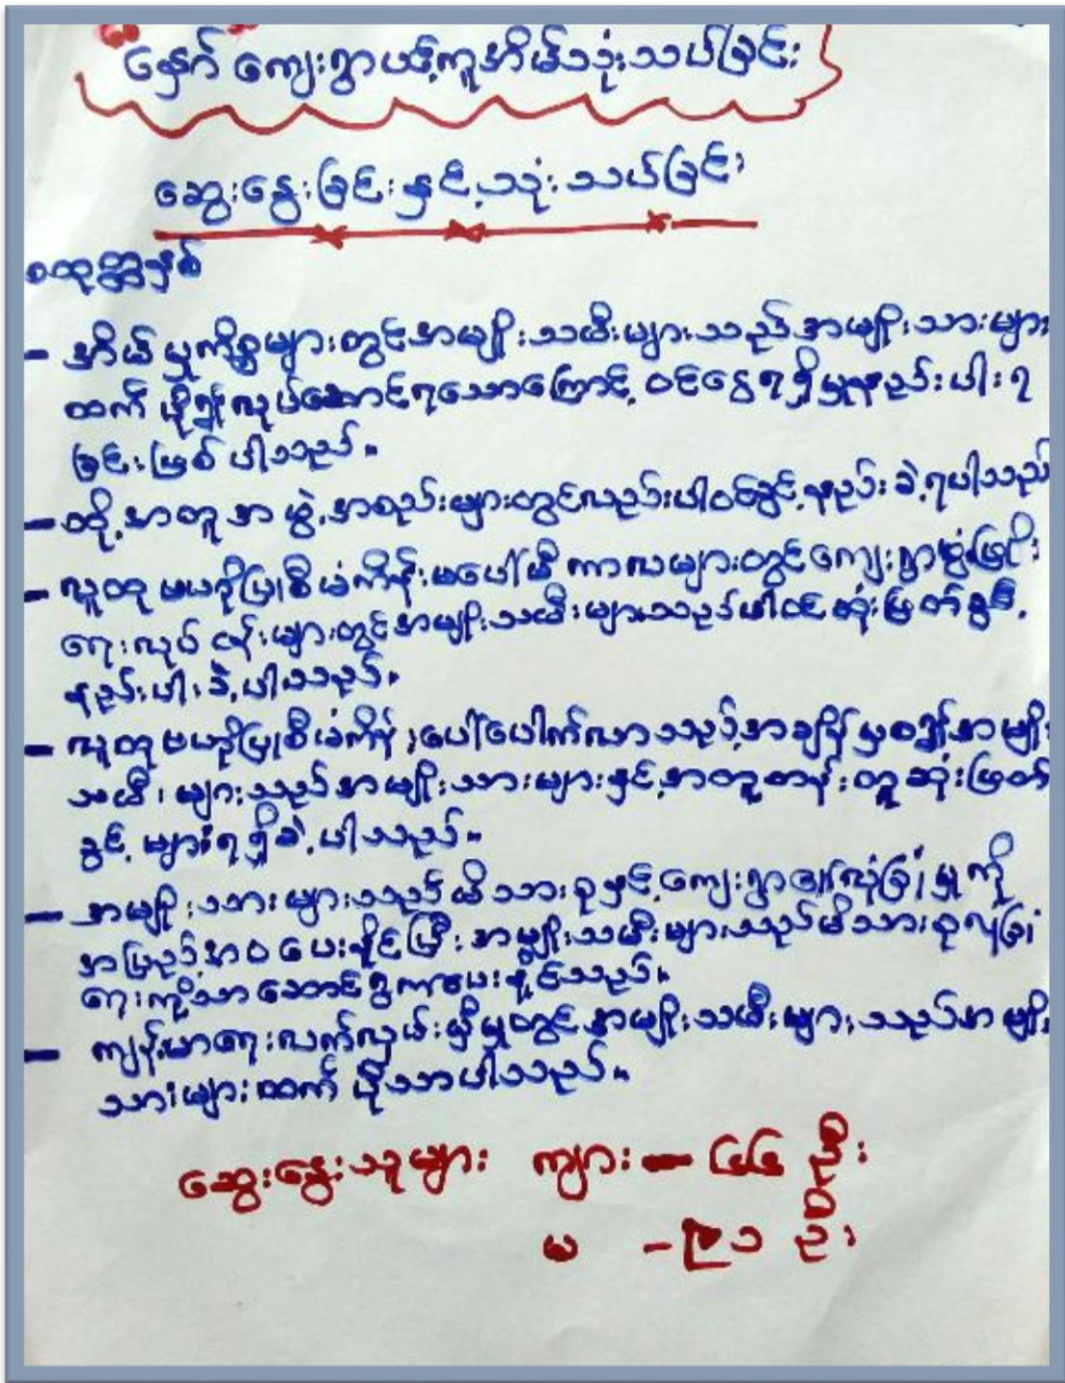 နှောက် ကျေးရွာပင့်ကူအိမ်သုံးသပ်ခြင်း
ဆွေးနွေးခြင်းနှင့်သုံးသပ်ခြင်း
စတုတ္ထနှစ်
- အိမ်မှုကိစ္စများတွင်အမျိုးသမီးများသည်အမျိုးသားများ
ထက် ပိုမိုလုပ်ဆောင်ရသောကြောင့် ဝင်ငွေရရှိမှုနည်းပါးရ
ခြင်းဖြစ်ပါသည်။
- ထို့အတူအဖွဲ့အစည်းများတွင်လည်းပါဝင်ခွင့်နည်းခဲ့ရပါသည်
- လူထုဗဟိုပြုစီမံကိန်းမပေါ်မီကာလများတွင်ကျေးရွာဖွံ့ဖြိုး
ရေးလုပ်ငန်းများတွင်အမျိုးသမီးများသည်ပါဝင်ဆုံးဖြတ်ခွင့်
နည်းပါးခဲ့ပါသည်။
- လူထုဗဟိုပြုစီမံကိန်းပေါ်ပေါက်လာသည့်အချိန်မှစ၍အမျိုး
သမီးများသည်အမျိုးသားများနှင့်အတူတန်းတူဆုံးဖြတ်
ခွင့်များရရှိခဲ့ပါသည်။
- အမျိုးသားများသည်မိသားစုနှင့်ကျေးရွာ လုံခြုံမှုကို
အပြည့်အဝပေးနိုင်ပြီးအမျိုးသမီးများသည်မိသားစုလုံခြုံ
ရေးကိုသာဆောင်ရွက်ပေးနိုင်သည်။
- ကျန်းမာရေးလက်လှမ်းမှီမှုတွင်အမျိုးသမီးများသည်အမျိုး
သားများထက် ပိုသာပါသည်။
ဆွေးနွေးသူများ ကျား - ၄၄ ဦး
မ - ဦး